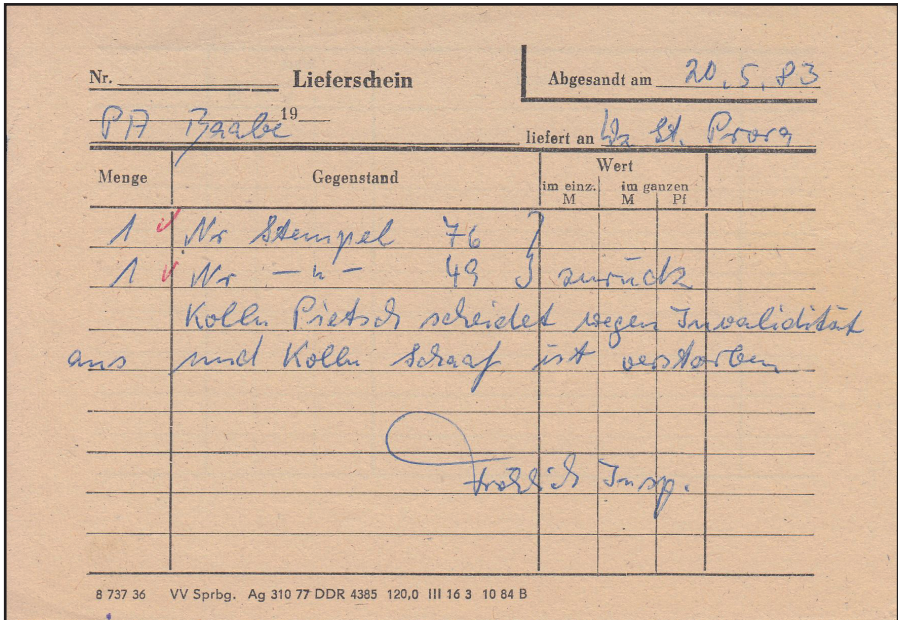 Nr. Lieferschein Abgesandt am 20.5.83
PA Baabe 19 liefert an St. Prora
Menge Gegenstand Wert
im einz. im ganzen
M M Pf
1 Nr Stempel 76 }
1 Nr –"– 49 } zurück
Kolln Pietsch scheidet wegen Invalidität
aus und Kolln Schaaf ist verstorben
Fröhlich Insp.
8 737 36 VV Sprbg. Ag 310 77 DDR 4385 120,0 III 16 3 10 84 B